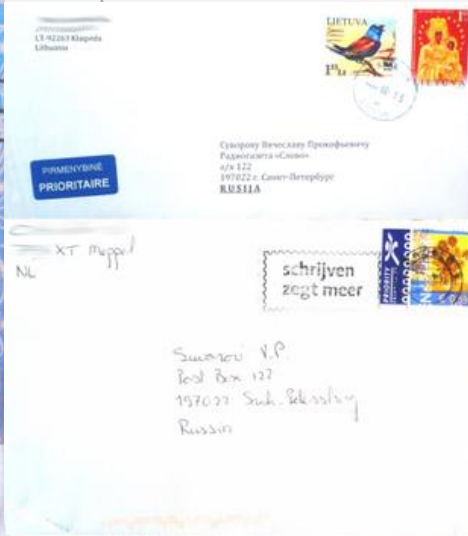 LT-92263 Klaipėda
Lithuania
LIETUVA
1,35 Lt
LIETUVA
PIRMENYBINĖ
PRIORITAIRE
Суворову Вячеславу Прокофьевичу
Радиогазета «Слово»
а/я 122
197022 г. Санкт-Петербург
RUSIJA
XT Meppel
NL
schrijven
zegt meer
PRIORITY
Suvorov V.P.
Post Box 122
197022 Sankt-Petersburg
Russia